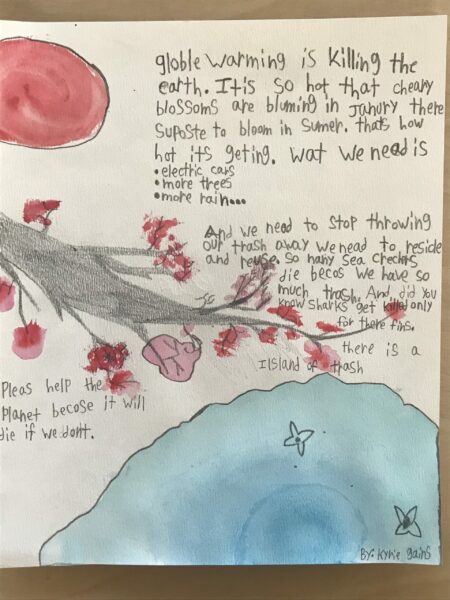 globle warming is killing the
earth. It is so hot that cheary
blossoms are bluming in Janury there
suposte to bloom in Sumer. thats how
hot its geting. wat we need is
• electric cars
• more trees
• more rain...
And we need to stop throwing
our trash away we need to resicle
and reyuse. So many sea crechers
die becos we have so
much trash. And, did you
know sharks get killed only
for there fins.
there is a
Iisland of trash
Pleas help the
Planet becose it will
die if we dont.
BY: Kyrie gains